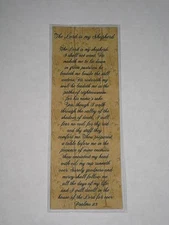 The Lord is my Shepherd
The Lord is my shepherd
I shall not want. He
maketh me to lie down
in green pastures; he
leadeth me beside the still
waters. He restoreth my
soul; he leadeth me in the
paths of righteousness
for his name's sake.
Yea, though I walk
through the valley of the
shadow of death, I will
fear no evil, for thou art
with me; thy rod and thy staff they
comfort me. Thou preparest
a table before me in the
presence of mine enemies;
thou anointest my head
with oil; my cup runneth
over. Surely goodness and
mercy shall follow me
all the days of my life
and I will dwell in the
house of the Lord for ever.
Psalms 23